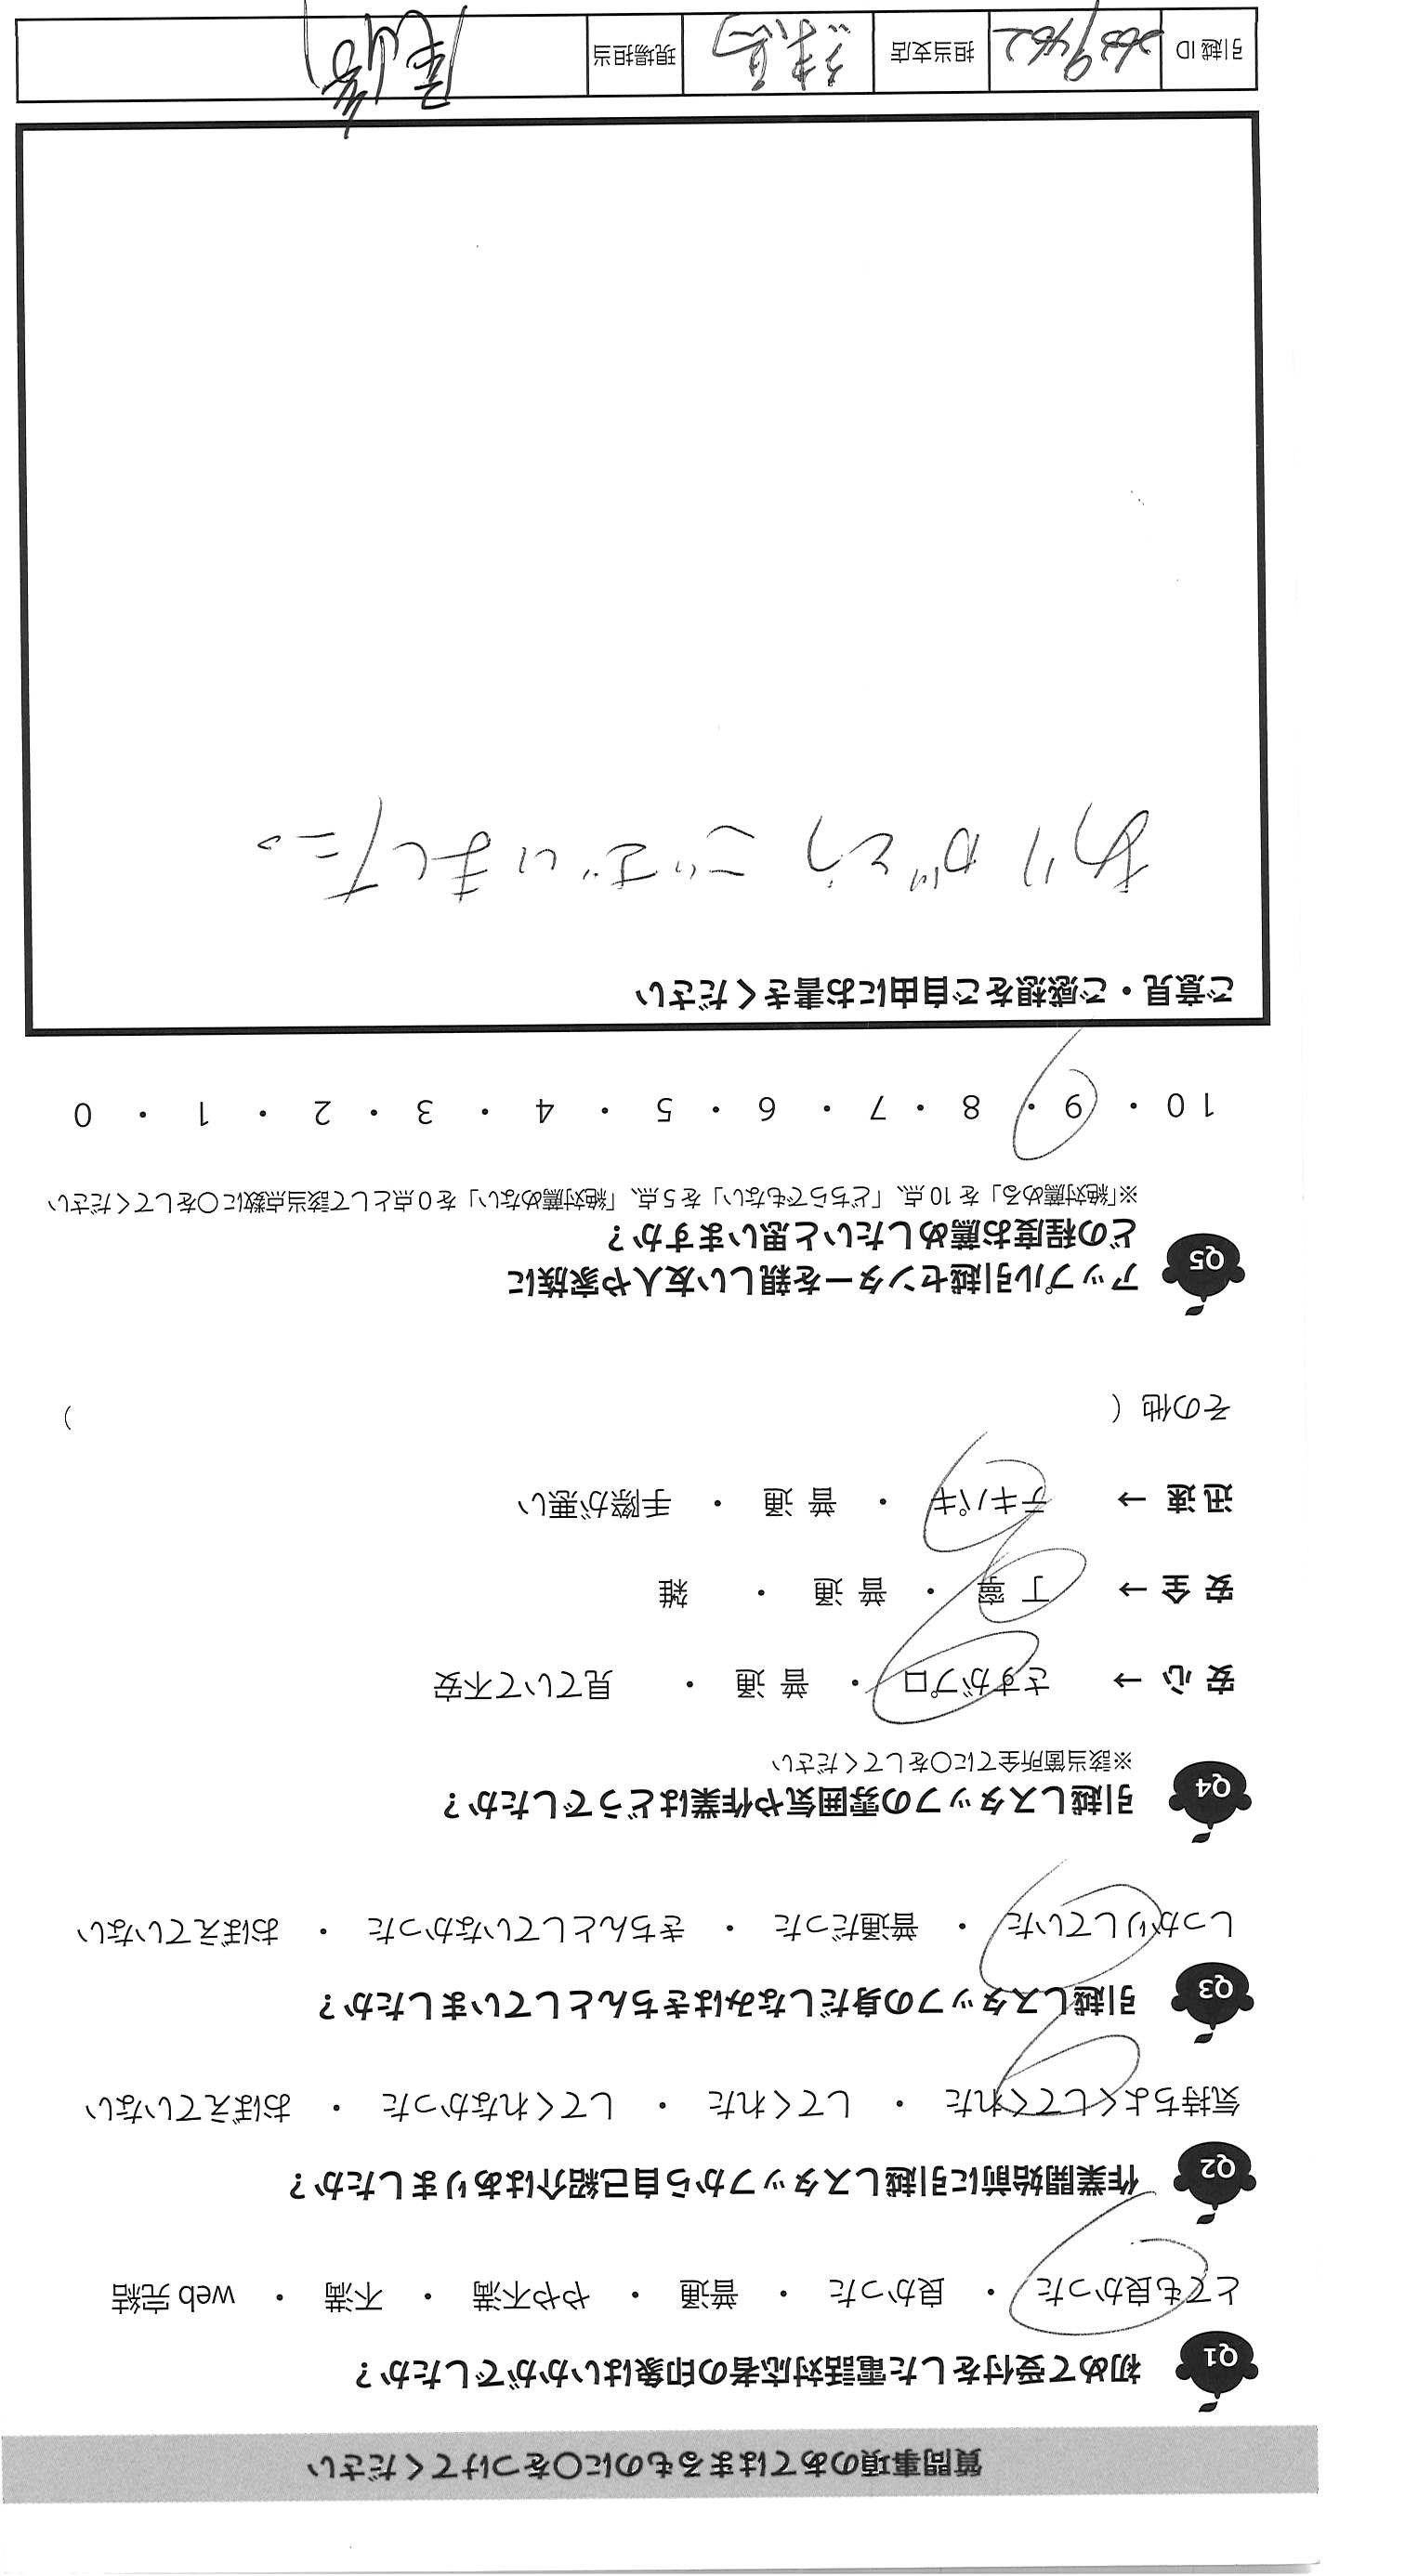 質問事項のあてはまるものに〇をつけてください
Q1 初めて受付をした電話対応者の印象はいかがでしたか？
とても良かった ・ 良かった ・ 普通 ・ やや不満 ・ 不満 ・ web 完結
Q2 作業開始前に引越しスタッフから自己紹介はありましたか？
気持ちよくしてくれた ・ してくれた ・ してくれなかった ・ おぼえていない
Q3 引越しスタッフの身だしなみはきちんとしていましたか？
しっかりしていた ・ 普通だった ・ きちんとしていなかった ・ おぼえていない
Q4 引越しスタッフの雰囲気や作業はどうでしたか？
※該当箇所全てに〇をしてください
安心 → さすがプロ ・ 普通 ・ 見ていて不安
安全 → 丁寧 ・ 普通 ・ 雑
迅速 → テキパキ ・ 普通 ・ 手際が悪い
その他（ ）
Q5 アップル引越センターを親しい友人や家族に
どの程度お薦めしたいと思いますか？
※「絶対薦める」を 10 点、「どちらでもない」を 5 点、「絶対薦めない」を 0 点として該当点数に〇をしてください
10 ・ 9 ・ 8 ・ 7 ・ 6 ・ 5 ・ 4 ・ 3 ・ 2 ・ 1 ・ 0
ご意見・ご感想をご自由にお書きください
ありがとうございました。
引越 ID 担当支店 現場担当 尾崎